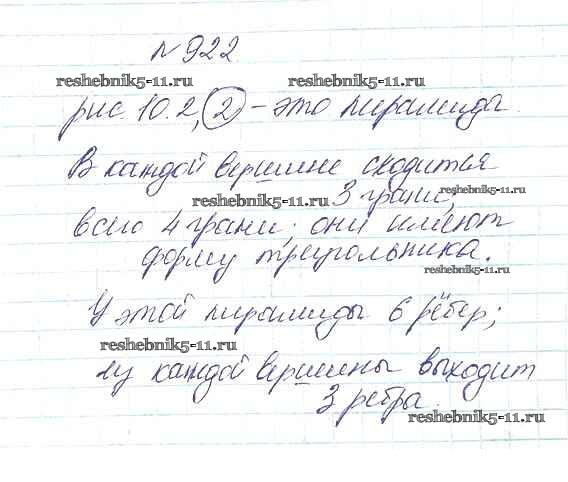 № 922
reshebnik5-11.ru reshebnik5-11.ru
рис. 10.2, 2 - это пирамиды.
В каждой вершине сходится
reshebnik5-11.ru 3 грани, reshebnik5-11.ru
всего 4 грани; они имеют
форму треугольника.
reshebnik5-11.ru
У этой пирамиды 6 рёбер;
reshebnik5-11.ru
из каждой вершины выходит
3 ребра.
reshebnik5-11.ru